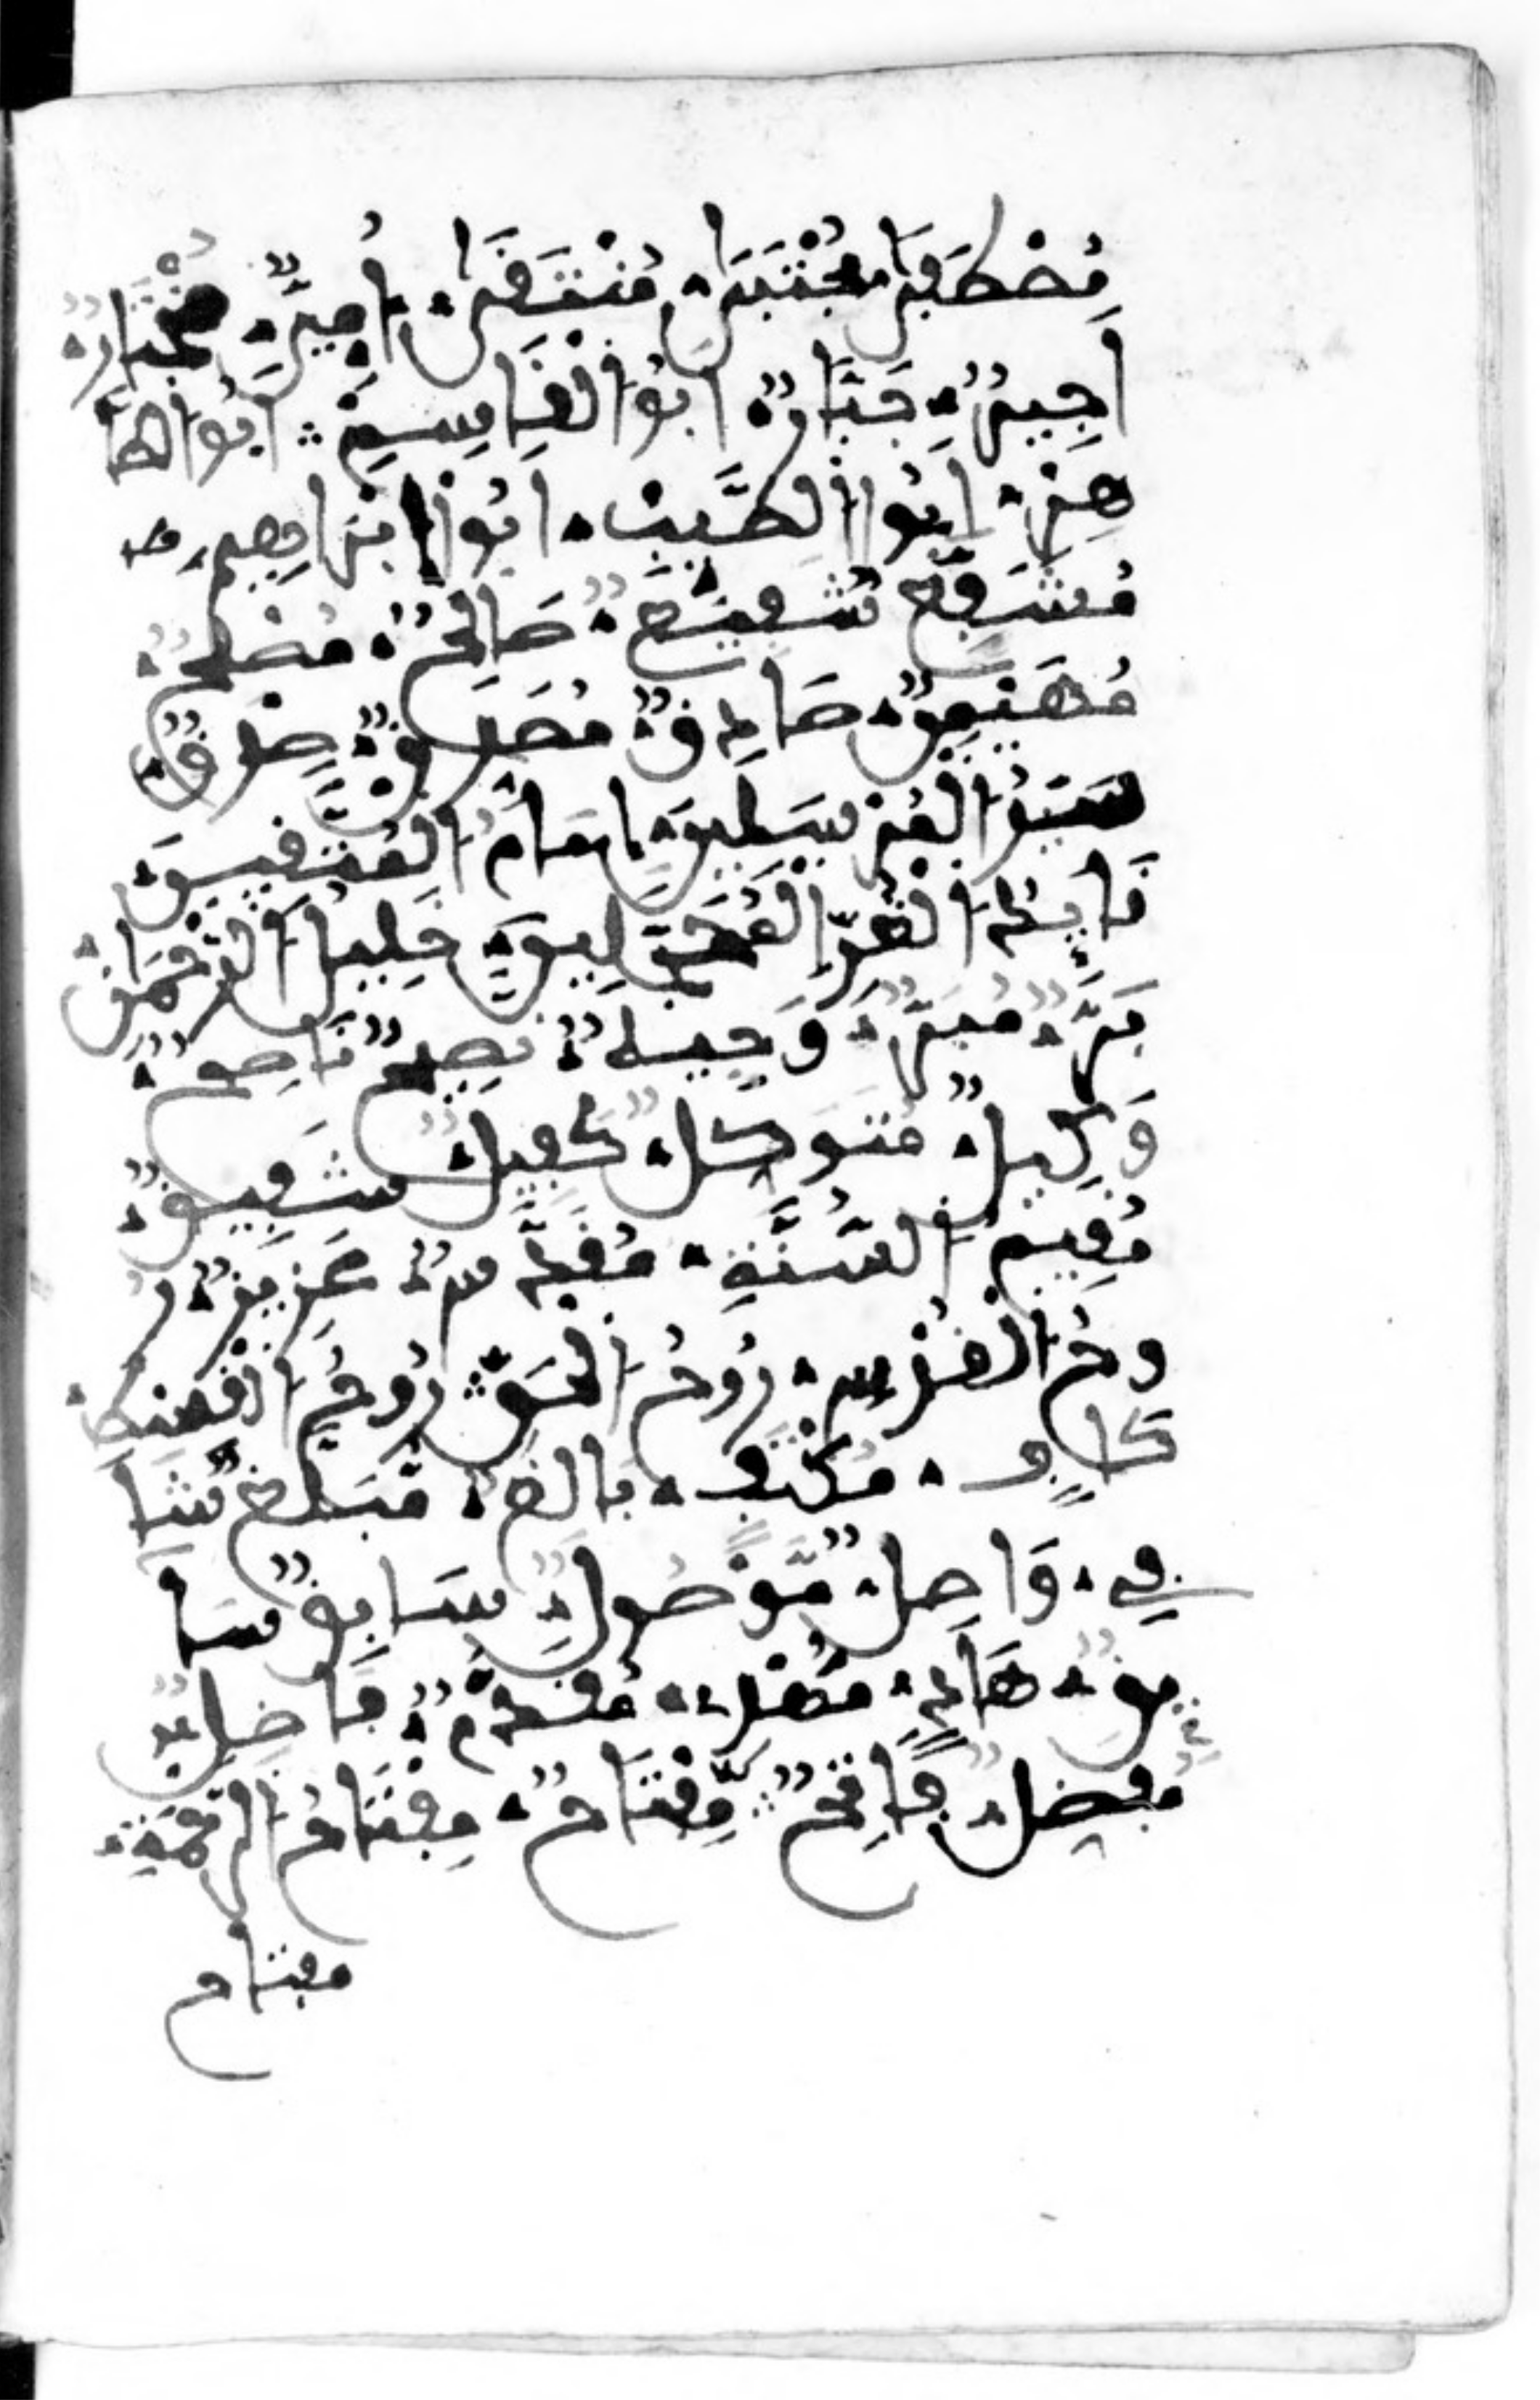 مُصْطَفِىٰ مُجْتَبَىٰ مُنْتَقَىٰ اُمِيٌّ مُخْتَارٌ
اَجِيرٌ جَبَّارٌ اَبُوا الْقَاسِمِ اَبُوا الطَّا
هِرْ اَبُوا الطَّيِّبْ اَبُوا اِبْرَاهِيم
مُشَفَّع شَفِيعٌ صَالِحٌ مُصْلِحٌ
مُهَيْمِنٌ صَادِقٌ مُصَدِّقٌ صِدْقٌ
سَيِّدُ الْمُرْسَلِينَ اِمَامُ الْمُتَّقِينَ
قَايِدُ الْغُرِّ الْمُحَجَّلِينَ خَلِيلُ الرَّحْمَنْ
بَرٌّ مُبَرٌّ وَجِيهٌ نَصِيحٌ نَاصِحٌ
وَكِيلٌ مُتَوَكِّلٌ كَفِيلٌ شَفِيقٌ
مُقِيمُ السُّنَّةِ مُقَدَّسٌ عَزِيزٌ رُ
وحُ الْقُدُسِ رُوحُ الْحَقِّ رُوحُ الْقِسْطِ
كَافٍ مُكْتَفٍ بَالِغٌ مُّبَلِّغٌ شَا
فٍ وَاصِلٌ مَّوْصُولٌ سَابِقٌ سَا
يِقٌ هَادٍ مُهْدٍ مُقَدَّمٌ فَاضِلٌ
مُفَضِّلٌ فَاتِحٌ مِّفْتَاحٌ مِفْتَاحُ الرَّحْمَةِ
مفتاح